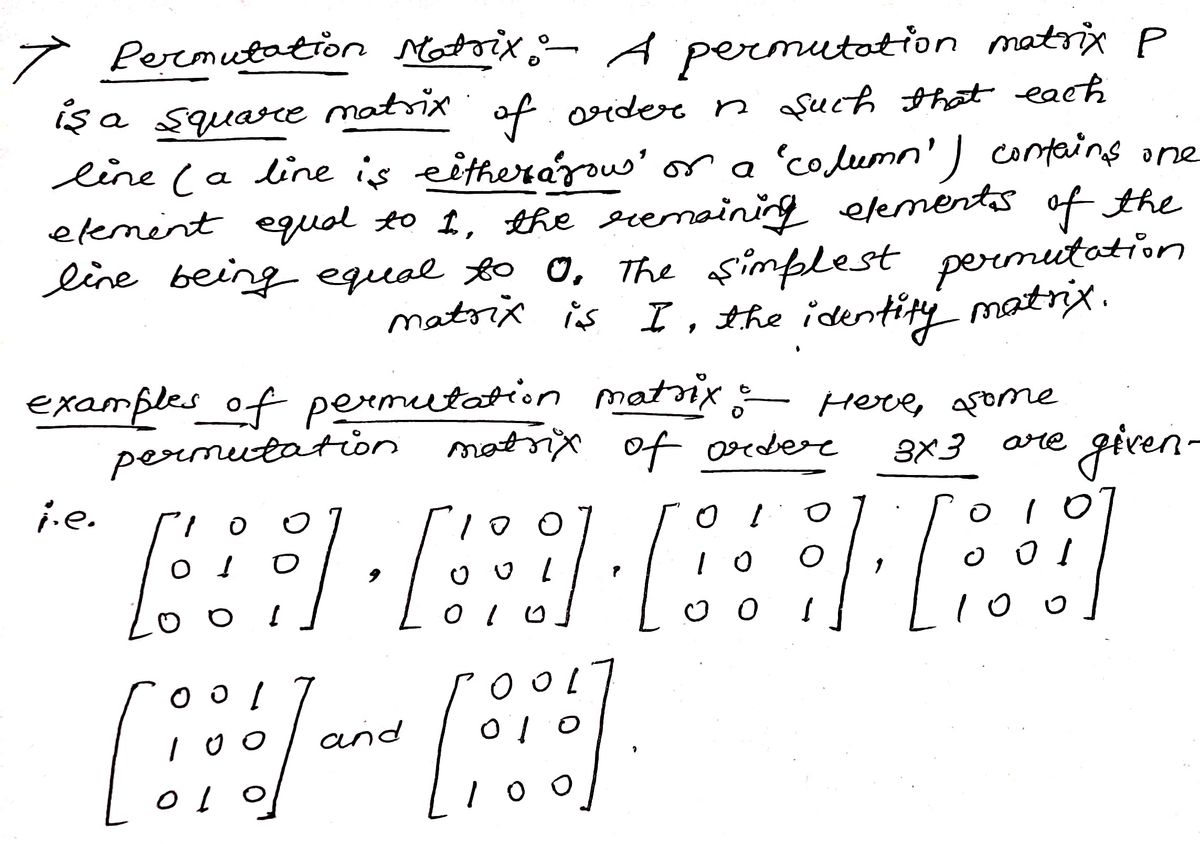 → Permutation Matrix :- A permutation matrix P
is a square matrix of order n such that each
line (a line is either a 'row' or a 'column') contains one
element equal to 1, the remaining elements of the
line being equal to 0. The simplest permutation
matrix is I, the identity matrix.
examples of permutation matrix :- Here, some
permutation matrix of order 3x3 are given-
i.e. [1 0 0] , [1 0 0] , [0 1 0] , [0 1 0]
[0 1 0] [0 0 1] [1 0 0] [0 0 1]
[0 0 1] [0 1 0] [0 0 1] [1 0 0]
[0 0 1] [0 0 1]
[1 0 0] and [0 1 0] .
[0 1 0] [1 0 0]